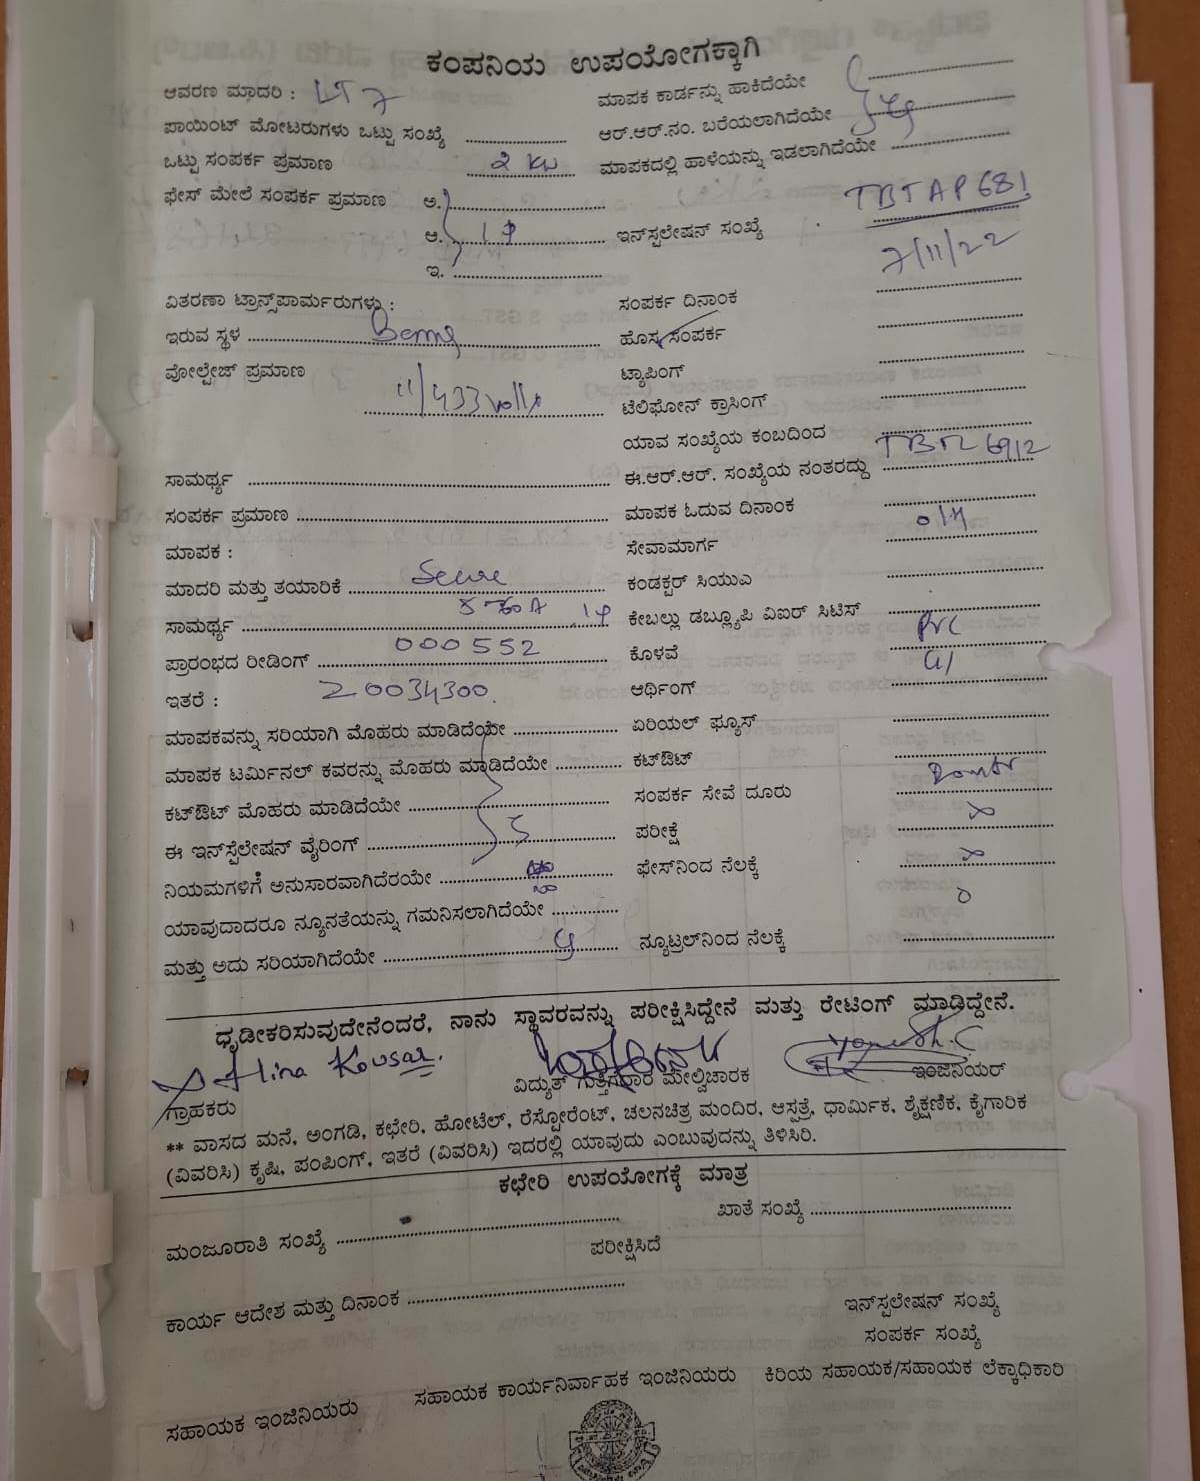 ಕಂಪನಿಯ ಉಪಯೋಗಕ್ಕಾಗಿ
ಆವರಣ ಮಾದರಿ : LT 7 ಮಾಪಕ ಕಾರ್ಡನ್ನು ಹಾಕಿದೆಯೇ
ಪಾಯಿಂಟ್ ಮೋಟರುಗಳು ಒಟ್ಟು ಸಂಖ್ಯೆ ಆರ್.ಆರ್.ನಂ. ಬರೆಯಲಾಗಿದೆಯೇ
ಒಟ್ಟು ಸಂಪರ್ಕ ಪ್ರಮಾಣ 2 KW ಮಾಪಕದಲ್ಲಿ ಹಾಳೆಯನ್ನು ಇಡಲಾಗಿದೆಯೇ
ಫೇಸ್ ಮೇಲೆ ಸಂಪರ್ಕ ಪ್ರಮಾಣ ಅ.
ಆ. 1φ ಇನ್‌ಸ್ಪಲೇಷನ್ ಸಂಖ್ಯೆ TBTAP681
ಇ. 7/11/22
ವಿತರಣಾ ಟ್ರಾನ್ಸ್‌ಪಾರ್ಮರುಗಳು : ಸಂಪರ್ಕ ದಿನಾಂಕ
ಇರುವ ಸ್ಥಳ ಹೊಸ ಸಂಪರ್ಕ
ವೋಲ್ಟೇಜ್ ಪ್ರಮಾಣ ಟ್ಯಾಪಿಂಗ್
11/433 volts ಟೆಲಿಫೋನ್ ಕ್ರಾಸಿಂಗ್
ಯಾವ ಸಂಖ್ಯೆಯ ಕಂಬದಿಂದ
ಸಾಮರ್ಥ್ಯ ಈ.ಆರ್.ಆರ್. ಸಂಖ್ಯೆಯ ನಂತರದ್ದು
ಸಂಪರ್ಕ ಪ್ರಮಾಣ ಮಾಪಕ ಓದುವ ದಿನಾಂಕ
ಮಾಪಕ : ಸೇವಾಮಾರ್ಗ o/H
ಮಾದರಿ ಮತ್ತು ತಯಾರಿಕೆ Secure ಕಂಡಕ್ಟರ್ ಸಿಯುಎ
ಸಾಮರ್ಥ್ಯ 1φ ಕೇಬಲ್ಲು ಡಬ್ಲ್ಯೂಪಿ ವಿಐರ್ ಸಿಟಿಸ್
ಪ್ರಾರಂಭದ ರೀಡಿಂಗ್ 000552 ಕೊಳವೆ PVC
ಇತರೆ : 20034300. ಆರ್ಥಿಂಗ್ GI
ಮಾಪಕವನ್ನು ಸರಿಯಾಗಿ ಮೊಹರು ಮಾಡಿದೆಯೇ ಏರಿಯಲ್ ಫ್ಯೂಸ್
ಮಾಪಕ ಟರ್ಮಿನಲ್ ಕವರನ್ನು ಮೊಹರು ಮಾಡಿದೆಯೇ ಕಟ್‌ಔಟ್
ಕಟ್‌ಔಟ್ ಮೊಹರು ಮಾಡಿದೆಯೇ ಸಂಪರ್ಕ ಸೇವೆ ದೂರು
ಈ ಇನ್‌ಸ್ಟೆಲೇಷನ್ ವೈರಿಂಗ್ ಪರೀಕ್ಷೆ
ನಿಯಮಗಳಿಗೆ ಅನುಸಾರವಾಗಿದೆರಯೇ ಫೇಸ್‌ನಿಂದ ನೆಲಕ್ಕೆ
ಯಾವುದಾದರೂ ನ್ಯೂನತೆಯನ್ನು ಗಮನಿಸಲಾಗಿದೆಯೇ
ಮತ್ತು ಅದು ಸರಿಯಾಗಿದೆಯೇ ನ್ಯೂಟ್ರಲ್‌ನಿಂದ ನೆಲಕ್ಕೆ
ಧೃಡೀಕರಿಸುವುದೇನೆಂದರೆ, ನಾನು ಸ್ಥಾವರವನ್ನು ಪರೀಕ್ಷಿಸಿದ್ದೇನೆ ಮತ್ತು ರೇಟಿಂಗ್ ಮಾಡಿದ್ದೇನೆ.
Hina Kousar.
ಗ್ರಾಹಕರು ವಿದ್ಯುತ್ ಗುತ್ತಿಗೆದಾರ ಮೇಲ್ವಿಚಾರಕ ಇಂಜಿನಿಯರ್
** ವಾಸದ ಮನೆ, ಅಂಗಡಿ, ಕಛೇರಿ, ಹೋಟೆಲ್, ರೆಸ್ಟೋರೆಂಟ್, ಚಲನಚಿತ್ರ ಮಂದಿರ, ಆಸ್ಪತ್ರೆ, ಧಾರ್ಮಿಕ, ಶೈಕ್ಷಣಿಕ, ಕೈಗಾರಿಕ
(ವಿವರಿಸಿ) ಕೃಷಿ, ಪಂಪಿಂಗ್, ಇತರೆ (ವಿವರಿಸಿ) ಇದರಲ್ಲಿ ಯಾವುದು ಎಂಬುವುದನ್ನು ತಿಳಿಸಿರಿ.
ಕಛೇರಿ ಉಪಯೋಗಕ್ಕೆ ಮಾತ್ರ
ಮಂಜೂರಾತಿ ಸಂಖ್ಯೆ ಖಾತೆ ಸಂಖ್ಯೆ
ಪರೀಕ್ಷಿಸಿದೆ
ಕಾರ್ಯ ಆದೇಶ ಮತ್ತು ದಿನಾಂಕ ಇನ್‌ಸ್ಪಲೇಷನ್ ಸಂಖ್ಯೆ
ಸಂಪರ್ಕ ಸಂಖ್ಯೆ
ಸಹಾಯಕ ಇಂಜಿನಿಯರು ಸಹಾಯಕ ಕಾರ್ಯನಿರ್ವಾಹಕ ಇಂಜಿನಿಯರು ಕಿರಿಯ ಸಹಾಯಕ/ಸಹಾಯಕ ಲೆಕ್ಕಾಧಿಕಾರಿ